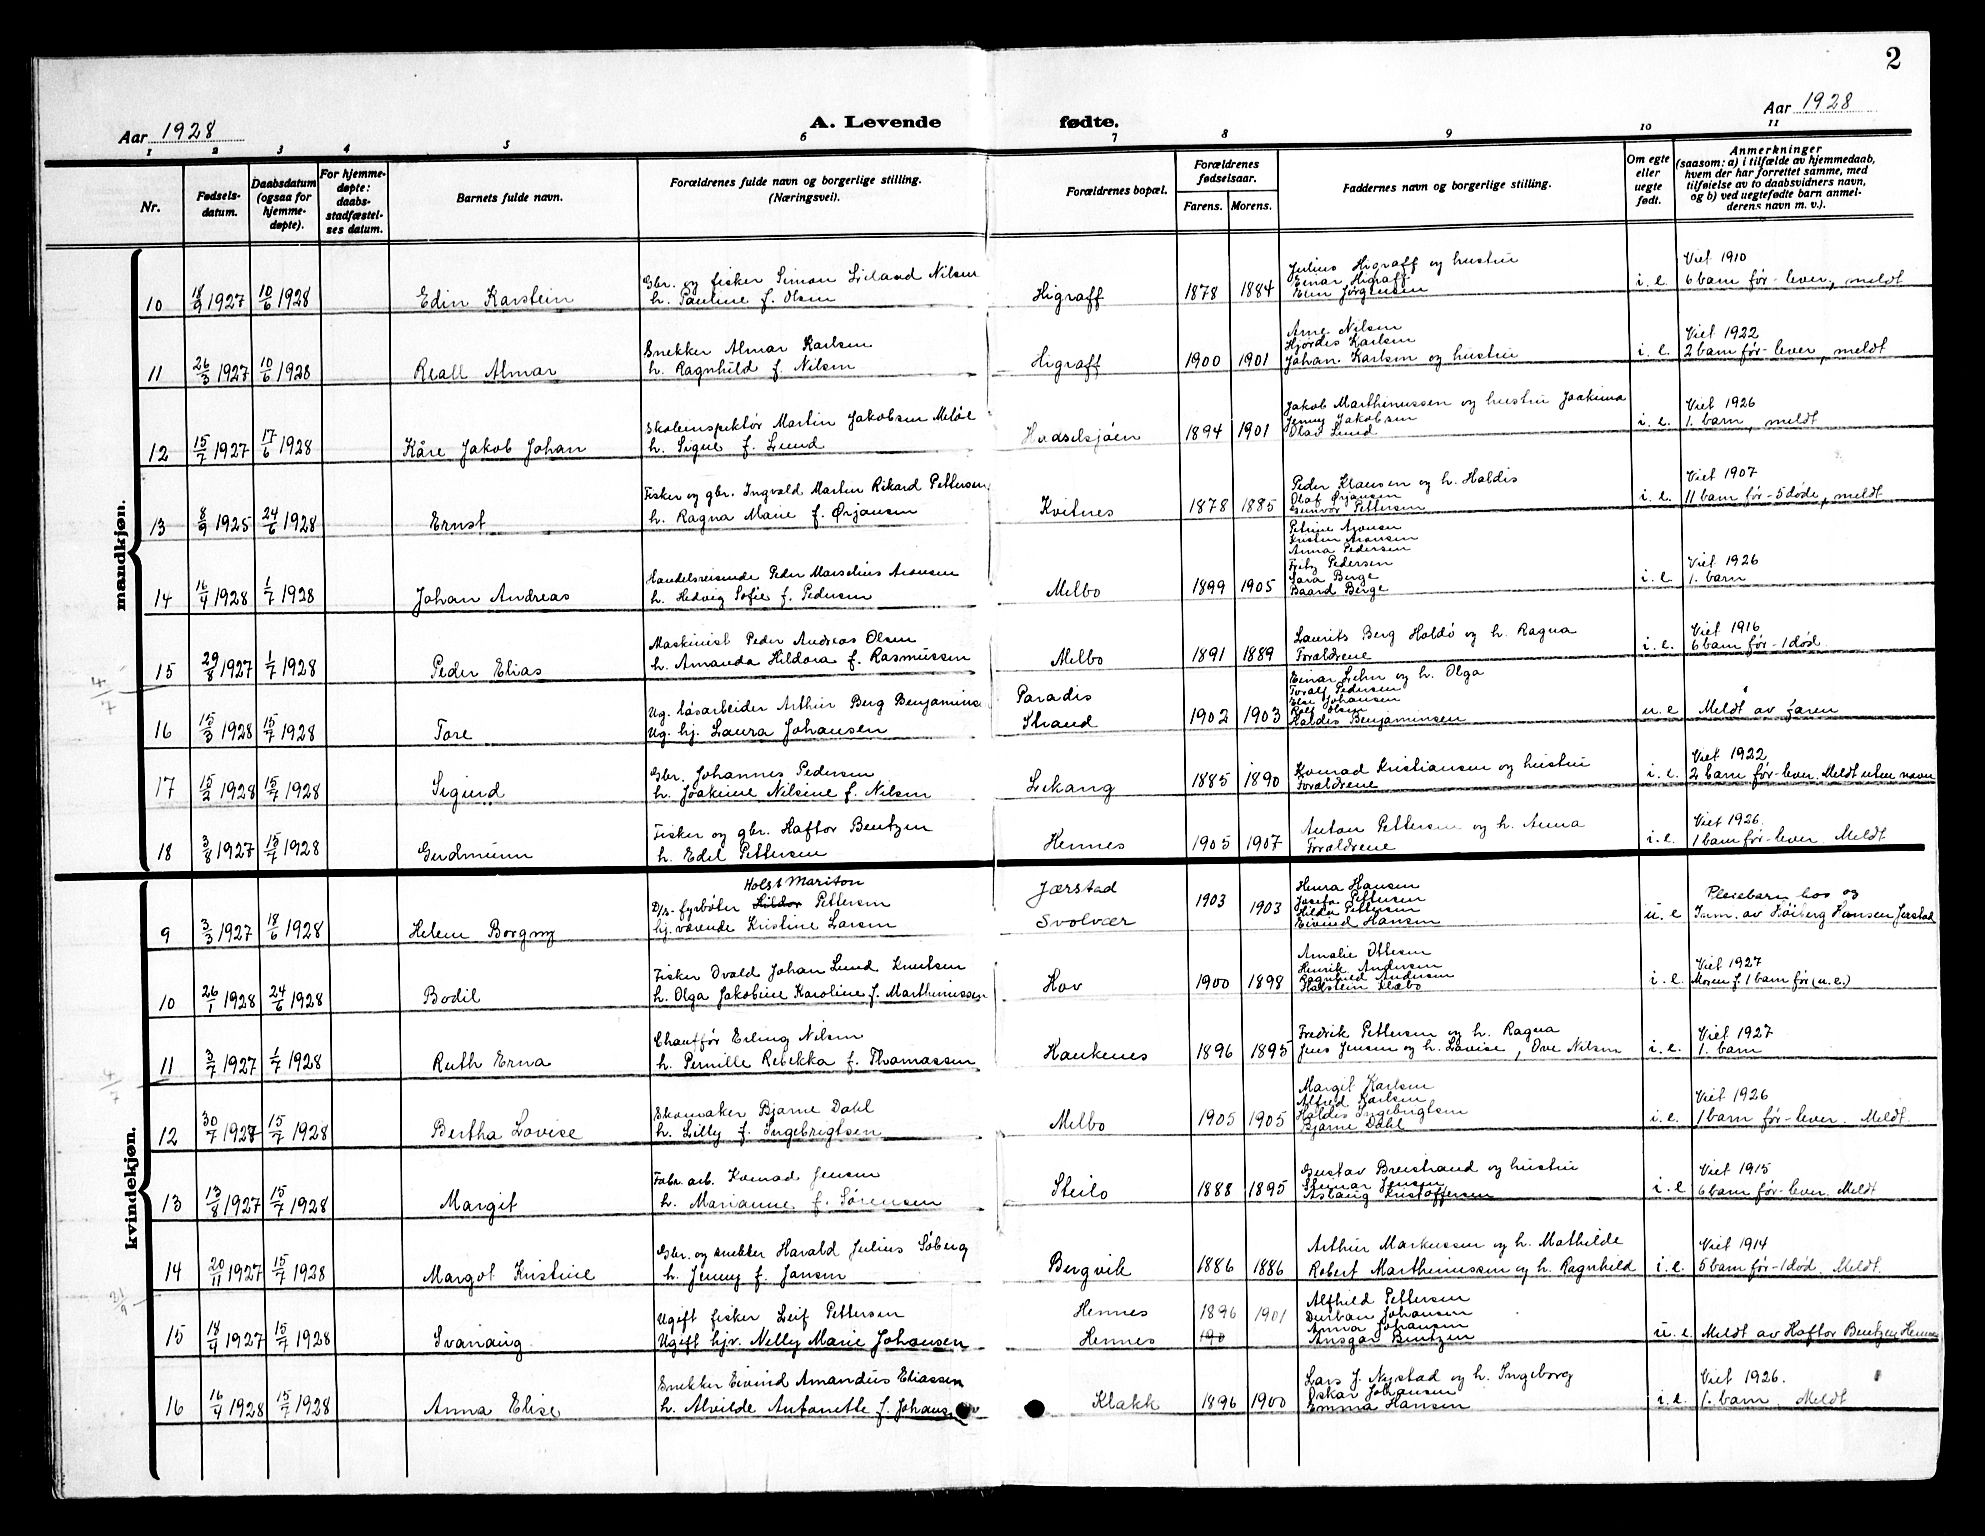 2
Aar 1928
A. Levende fødte.
Aar 1928
1 2 3 4 5 6 7 8 9 10 11
Nr.
Fødsels-
datum.
Daabsdatum
(ogsaa for
hjemme-
døpte).
For hjemme-
døpte:
daabs-
stadfæstel-
ses datum.
Barnets fulde navn.
Forældrenes fulde navn og borgerlige stilling.
(Næringsvei).
Forældrenes bopæl.
Forældrenes
fødselsaar.
Farens. Morens.
Faddernes navn og borgerlige stilling.
Om egte
eller
uegte
født.
Anmerkninger
(saasom: a) i tilfælde av hjemmedaab,
hvem der har forrettet samme, med
tilføielse av to daabsvidners navn,
og b) ved uegtefødte barn anmel-
derens navn m. v.).
mandkjøn.
10 18/9 1927 10/6 1928 Edin Karstein
Gbr. og fisker Simon Nilsen
h. Pauline f. Olsen
Higraff 1878 1884
Julius Higraff og hustru
Einar Higraff
Elin Jørgensen
i. e.
Viet 1910
6 barn før - lever, meldt
11 26/3 1927 10/6 1928 Reall Almar
Snekker Almar Karlsen
h. Ragnhild f. Nilsen
Higraff 1900 1901
Arne Nilsen
Hjørdis Karlsen
Johan Karlsen og hustru
i. e.
Viet 1922
2 barn før - lever, meldt
12 15/7 1927 17/6 1928 Kåre Jakob Johan
Skoleinspektør Martin Jakobsen Meløe
h. Signe f. Lund
Hadselsjøen 1894 1901
Jakob Marthinussen og hustru Joakima
Jenny Jakobsen
Olav Lund
i. e.
Viet 1926
1. barn, meldt
13 8/9 1925 24/6 1928 Ernst
Fisker og gbr. Ingvald Martin Rikard Pettersen
h. Ragna Marie f. Ørjansen
Kvitnes 1878 1885
Peder Klausen og h. Haldis
Olaf Ørjansen
Gunvor Pettersen
i. e.
Viet 1907
11 barn før - 5 døde, meldt
14 16/4 1928 1/7 1928 Johan Andreas
Handelsreisende Peder Marselius Aronsen
h. Hedvig Sofie f. Pedersen
Melbo 1899 1905
Petrine Aronsen
Kristen Aronsen
Anna Pedersen
Fritz Pedersen
Sara Berge
Baard Berge
i. e
Viet 1926
1. barn
15 29/8 1927 1/7 1928 Peder Elias
Maskinist Peder Andreas Olsen
h. Amanda Hildora f. Rasmussen
Melbo 1891 1889
Laurits Berg Holdø og h. Ragna
Forældrene
i. e.
Viet 1916
6 barn før - 1 død
4/7
16 15/3 1928 15/7 1928 Tore
Ug. løsarbeider Arthur Berg Benjaminsen
Ug. hj. Laura Johansen
Paradis
Strand
1902 1903
Einar Lehn og h. Olga
Toralf Pedersen
Else Johansen
Rolf Olsen
Haldis Benjaminsen
u. e
Meldt av faren
17 15/2 1928 15/7 1928 Sigurd
Gbr. Johannes Pedersen
h. Joakine Nilsine f. Nilsen
Lekang 1885 1890
Konrad Kristiansen og hustru
Forældrene
i. e.
Viet 1922
2 barn før - lever. Meldt uten navn
18 3/8 1927 15/7 1928 Gudmunn
Fisker og gbr. Haftor Bentzen
h. Edel Pettersen
Hennes 1905 1907
Anton Pettersen og h. Anna
Forældrene
i. e.
Viet 1926.
1 barn før - lever. Meldt
kvindekjøn.
9 3/3 1927 18/6 1928 Helene Borgny
Holst Mariton
D/s. fyrbøter Hildor Pettersen
hj. værende Kristine Larsen
Jærstad
Svolvær
1903 1903
Henra Hansen
Josefa Pettersen
Hilda Pettersen
Eivind Hansen
u. e
Pleiebarn hos og
Høiberg Hansen Jerstad
10 26/1 1928 24/6 1928 Bodil
Fisker Ovald Johan Lund Knutsen
h. Olga Jakobine Karoline f. Marthinussen
Hov 1900 1898
Amalie Ottesen
Henrik Andersen
Ragnhild Andersen
Halstein
i. e.
Viet 1927
Moren f. 1 barn før (u. e.)
11 3/7 1927 1/7 1928 Ruth Erna
Chauffør Erling Nilsen
h. Pernille Rebekka f. Thomassen
Haukenes 1896 1895
Fredrik Pettersen og h. Ragna
Jens Jensen og h. Lovise, Ove Nilsen
i. e.
Viet 1927
1. barn
4/7
12 30/7 1927 15/7 1928 Bertha Lovise
Skomaker Bjarne Dahl
h. Lilly f. Ingebrigtsen
Melbo 1905 1905
Margit Karlsen
Alfred Karlsen
Haldis Ingebrigtsen
Bjarne Dahl
i. e.
Viet 1926
1 barn før - lever. Meldt.
13 13/8 1927 15/7 1928 Margit
Fabr. arb. Konrad Jensen
h. Marianne f. Sørensen
Steilo 1888 1895
Gustav Breistrand og hustru
Steinar Jensen
Aslaug Kristoffersen
i. e
Viet 1915
6 barn før - lever. Meldt
14 20/11 1927 15/7 1928 Margot Kristine
Gbr. og snekker Harald Julius Søberg
h. Jenny f. Jansen
Bergvik 1886 1886
Arthur Markussen og h. Mathilde
Robert Marthinussen og h. Ragnhild
i. e.
Viet 1914
5 barn før - 1 død. Meldt.
21/9
15 18/4 1927 15/7 1928 Svanaug
Ugift fisker Leif Pettersen
Ugift hjv. Nelly Marie Johansen
Hennes 1896 1901
Hennes 190
Alfhild Pettersen
Durban Johansen
Anna Johansen
Ansgar Bentzen
u. e.
Meldt av Haftor Bentzen Hennes
16 16/4 1928 15/7 1928 Anna Elise
Snekker Eivind Amandus Eliassen
h. Alvilde Antonette f. Johansen
Klakk 1896 1900
Lars J. Nystad og h. Ingeborg
Oskar Johansen
Emma Hansen
i. e.
Viet 1926.
1. barn. Meldt